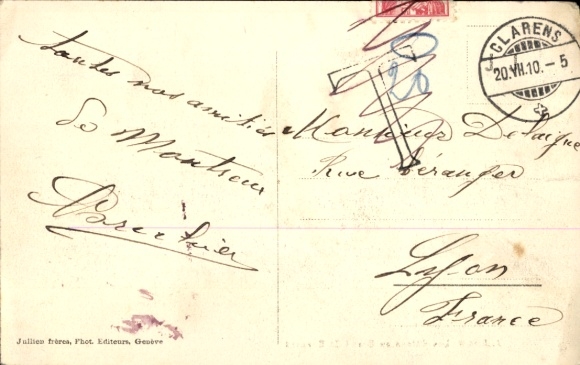 toutes nos amitiés
de Montreux
CLARENS
20.VII.10.-5
T
20
Monsieur Delaigue
Rue Béranger
Lyon
France
Jullien frères, Phot. Editeurs, Genève